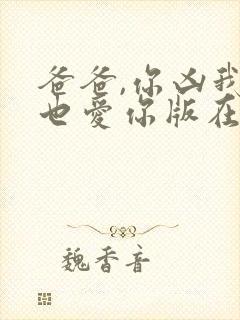 爸爸,你凶我
也爱你版在
魏香音